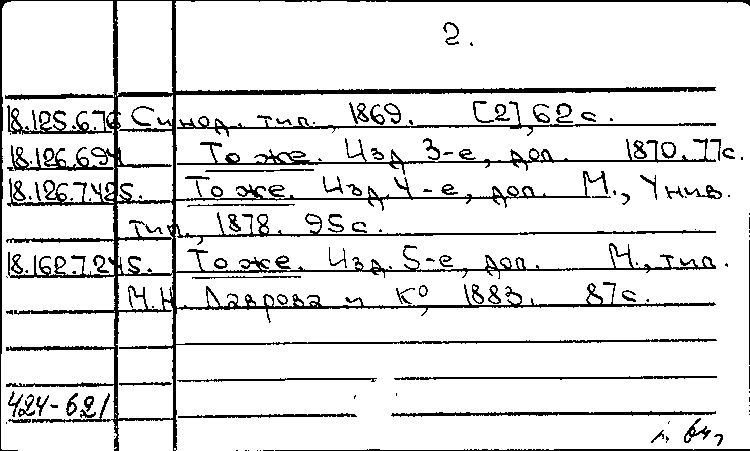 2.
18.125.6.76 Синод. тип., 1869. [2], 62 с.
18.126.6.94 То же. Изд. 3-е, доп. 1870. 77 с.
18.126.7.425. То же. Изд. 4-е, доп. М., Унив.
тип., 1878. 95 с.
18.162.7.245. То же. Изд. 5-е, доп. М., тип.
М.Н. Лаврова и К°, 1883. 87 с.
424-621